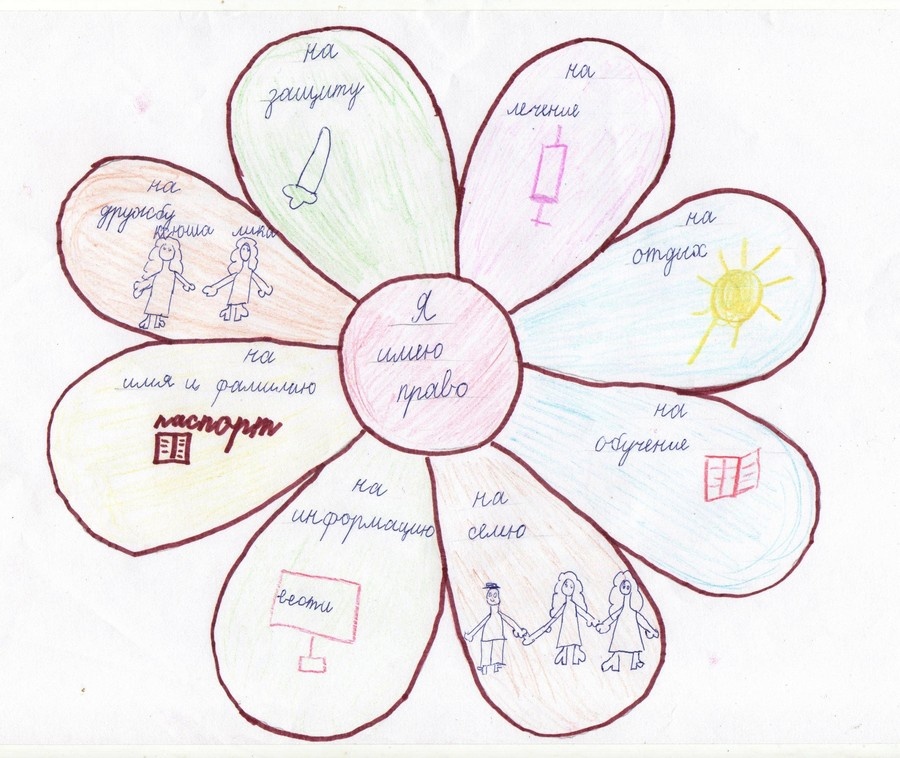 Я
имею
право
на
защиту
на
лечение
на
отдых
на
обучение
на
семю
на
информацию
вести
на
имя и фамилию
паспорт
на
дружбу
ксюша лика